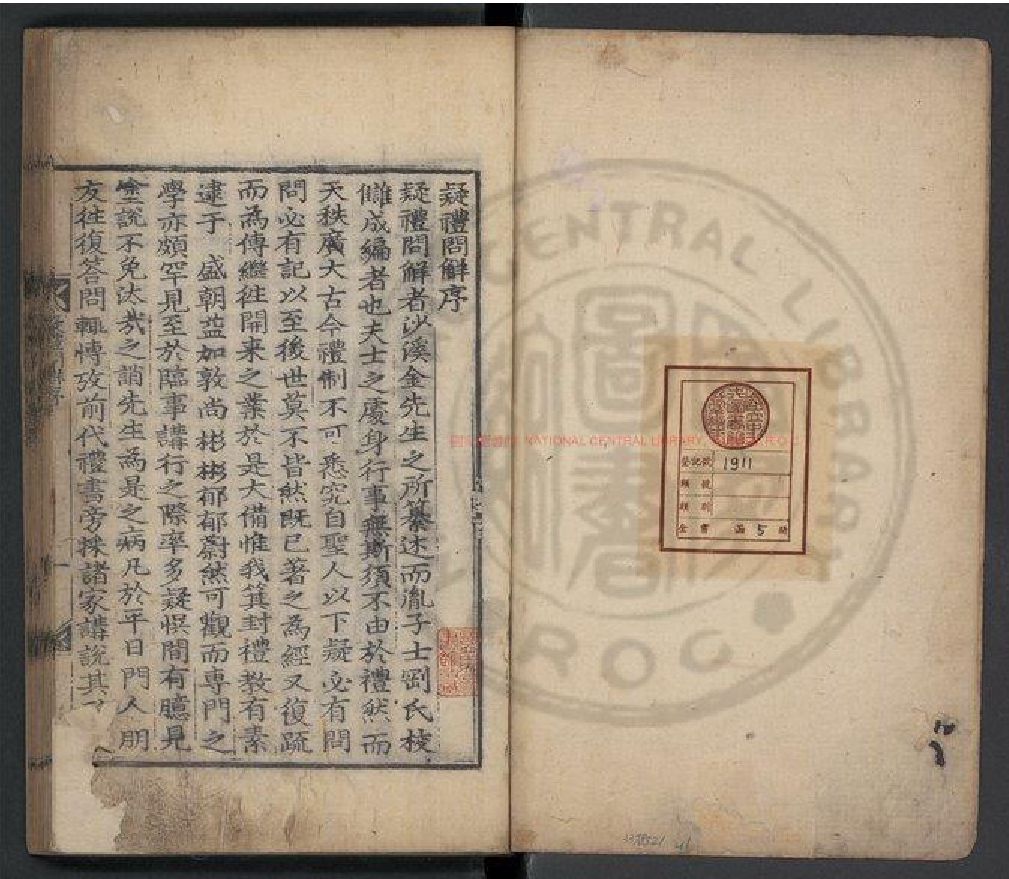 疑禮問解序
疑禮問解者沙溪金先生之所纂述而胤子士剛氏校
讎成編者也夫士之處身行事無斯須不由於禮然而
天秩廣大古今禮制不可悉究自聖人以下疑必有問
問必有記以至後世莫不皆然既已著之為經又復疏
而為傳繼徃開来之業於是大備惟我箕封禮教有素
逮于 盛朝益加敦尚彬彬郁郁蔚然可觀而専門之
學亦頗罕見至於臨事講行之際率多疑悞間有臆見
塗說不免汰哉之誚先生為是之病凡於平日門人朋
友徃復答問輒博攷前代禮書旁採諸家講說其
NATIONAL CENTRAL LIBRARY
R.O.C
登記號 1911
類 號
全 書 函 5 冊
CENTRAL LIBRARY
ROC
圖書